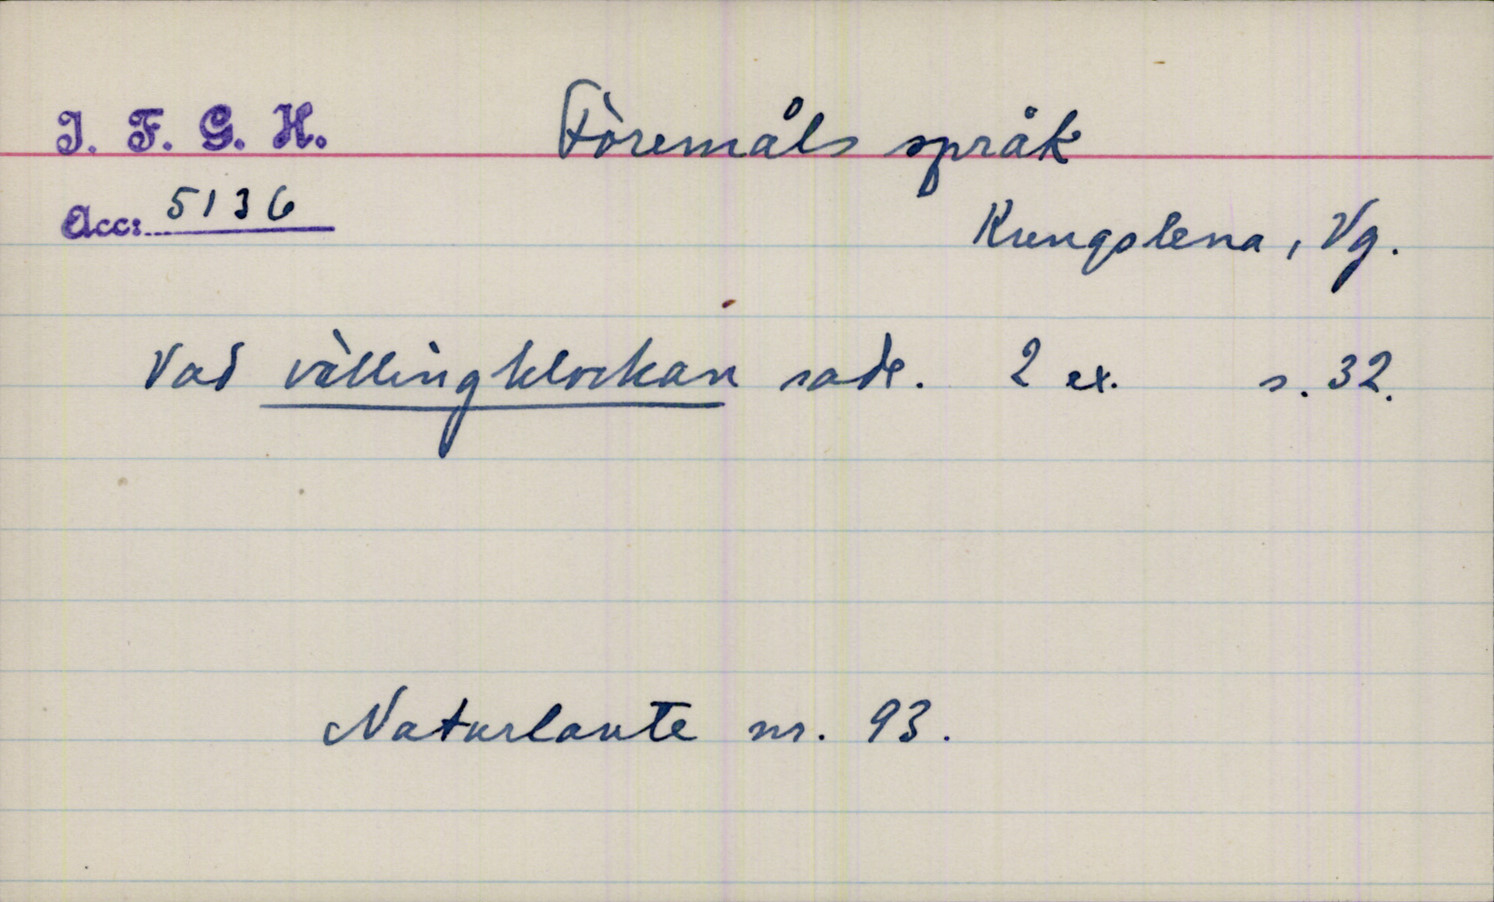 I. F. G. H.
Föremåls språk
Acc: 5136
Kungslena, Vg.
Vad vällingklockan sade. 2 ex. s. 32.
Naturlaute nr. 93.